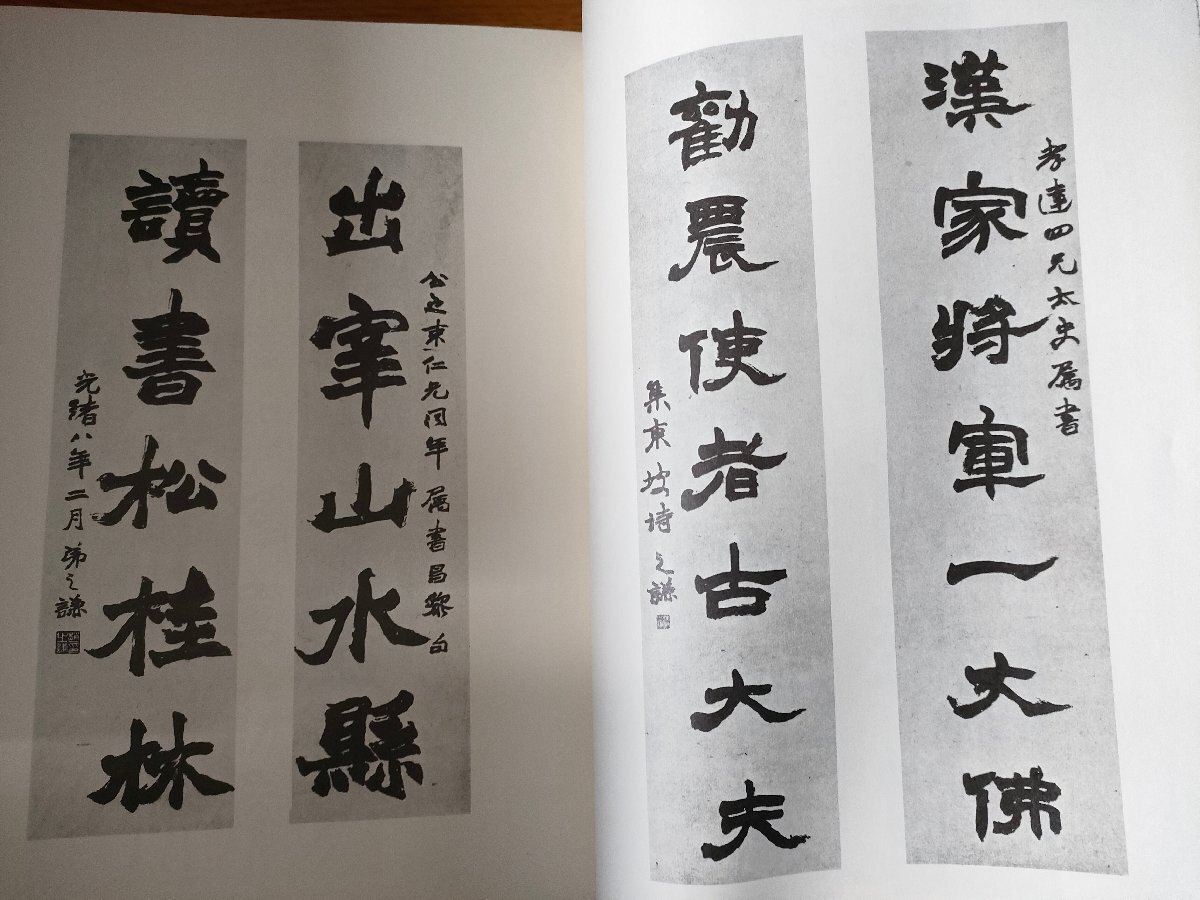 漢家將軍一大佛
孝達四兄太史属書
勸農使者古大夫
集東坡詩 之謙
出宰山水縣
公之東仁兄同年 属書昌黎句
讀書松桂林
光緒八年二月 弟之謙